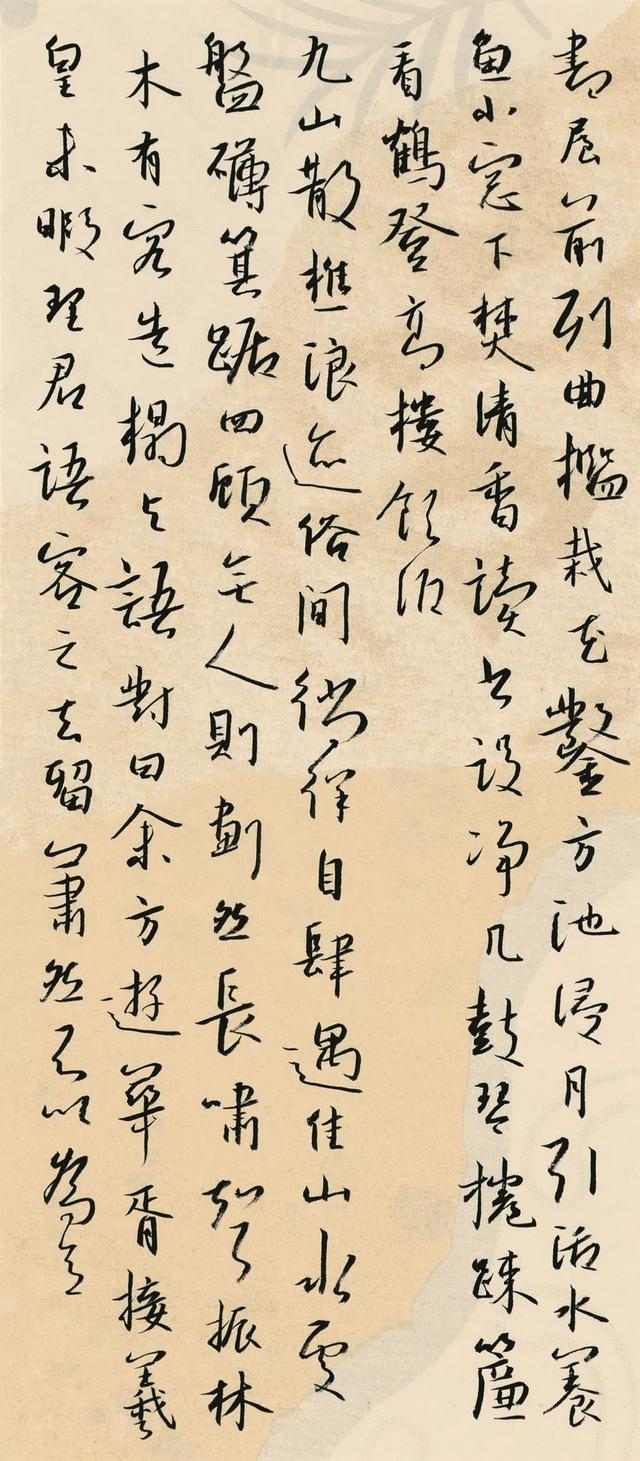 書屋前列曲檻栽花鑿方池浸月引活水養
魚小窓下焚清香讀书设净几鼓琴捲疎簾
看鶴登高樓飲酒
九山散樵浪迹俗間徜徉自肆遇佳山水處
盤礴箕踞四顧無人則劃然長嘯聲振林
木有客造榻与語對曰余方遊華胥接羲
皇未暇理君語客之去留蕭然不以為意